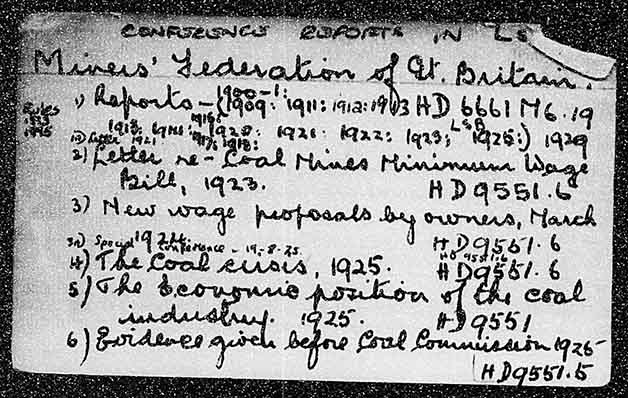 CONFERENCE REPORTS IN LS
Miners' Federation of Gt. Britain.
1900-1:
1) Reports - (1909: 1911: 1912: 1913 HD 6661 M6.19
Rules
1918: 1920: 1921: 1922: 1923; LSD 1925:) 1929
1a) Letter 1921 1917: 1918:
2) Letter re - Coal Mines Minimum Wage
Bill, 1923. HD9551.6
3) New wage proposals by owners, March
1924 HD9551.6
3a) Special Conference - 19-8-25 HD 9551.6
4) The Coal crisis, 1925. HD9551.6
5) The Economic position of the coal
industry. 1925. HD9551
6) Evidence given before Coal Commission 1925-
HD9551.5